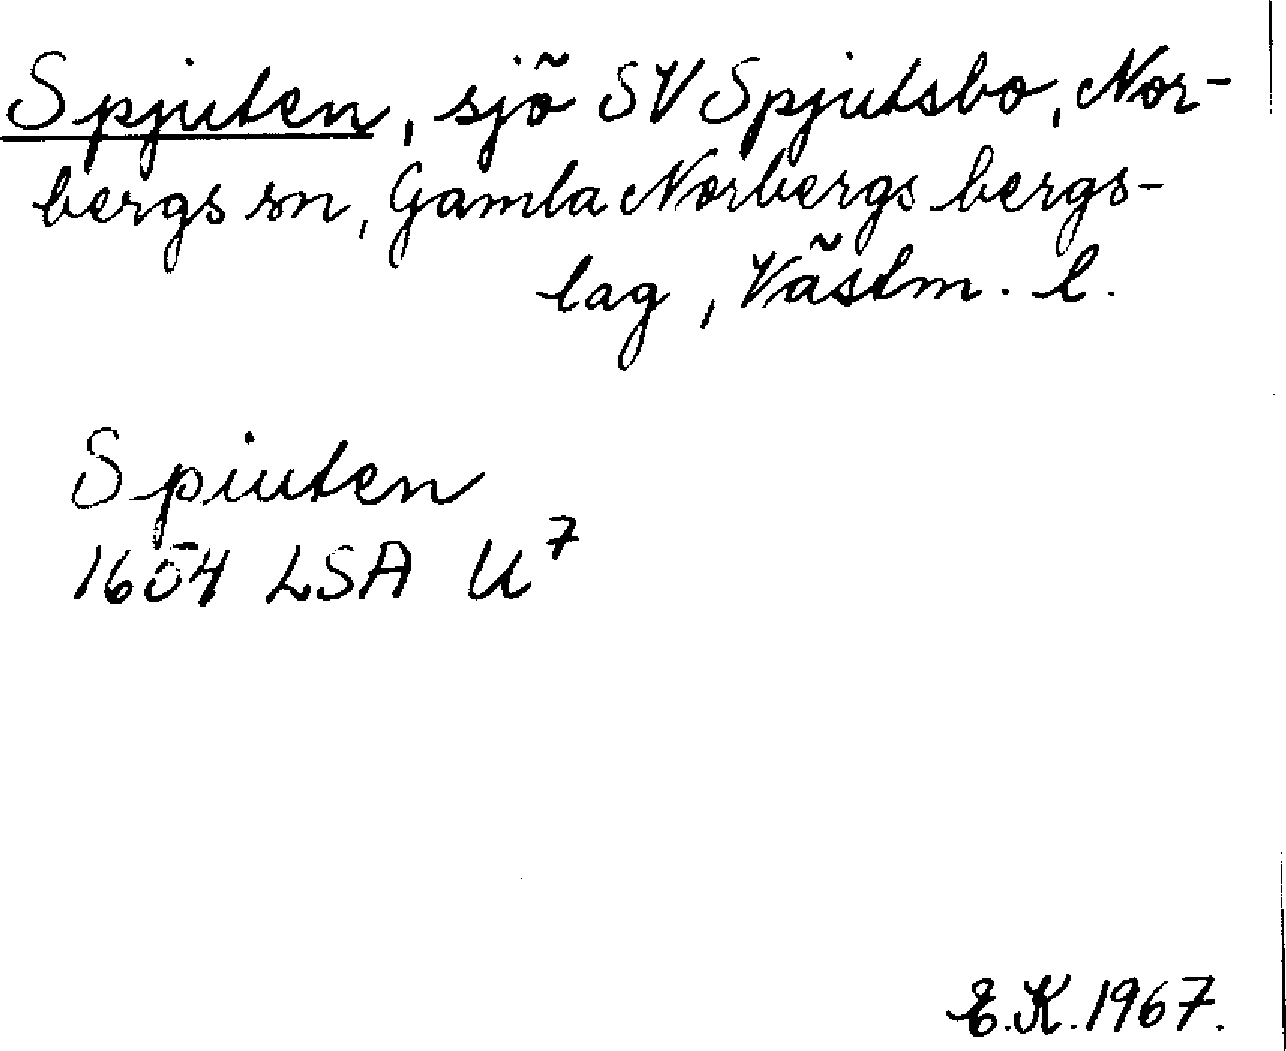 Spjuten, sjö SV Spjutsbo, Nor-
bergs sn, Gamla Norbergs bergs-
lag, Västm. l.
Spiuten
1654 LSA U⁷
E.K. 1967.